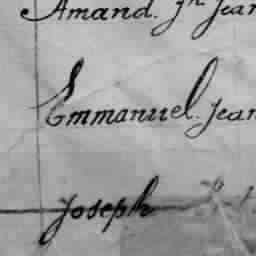 Amand. Jn Jean
Emmanuel. Jean
Joseph